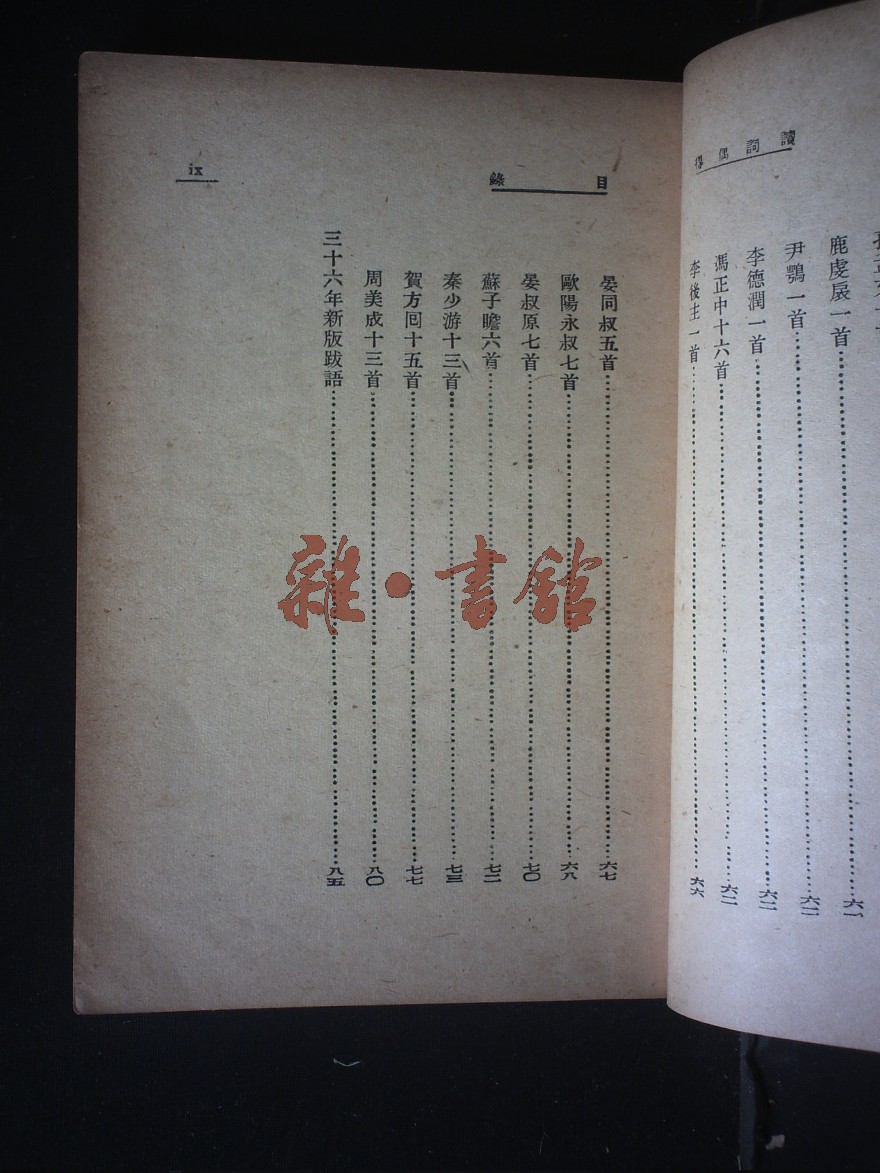 讀詞偶得
鹿虔扆一首……六一
尹鶚一首……六二
李德潤一首……六二
馮正中十六首……六二
李後主一首……六六
目錄
ix
晏同叔五首……六七
歐陽永叔七首……六八
晏叔原七首……七〇
蘇子瞻六首……七二
秦少游十三首……七三
賀方囘十五首……七七
周美成十三首……八〇
三十六年新版跋語……八五
雜·書館